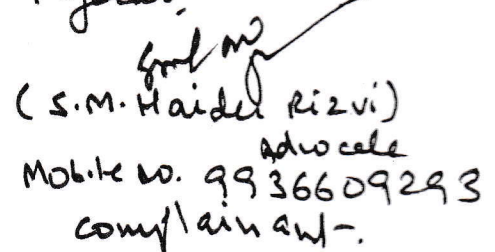 (S.M. Haider Rizvi)
Advocate
Mobile no. 9936609293
complainant.